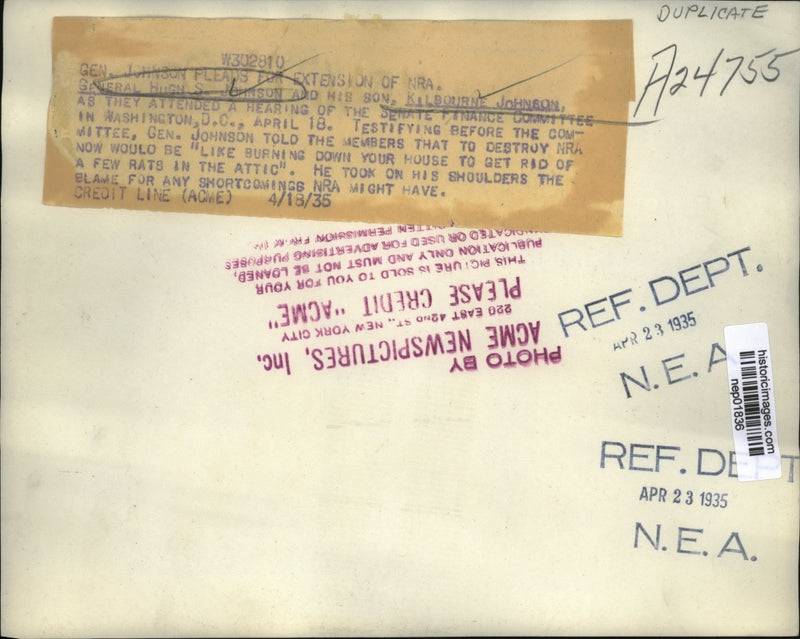 DUPLICATE
A24755
W302810
GEN. JOHNSON PLEADS FOR EXTENSION OF NRA.
GENERAL HUGH S. JOHNSON AND HIS SON, KILBOURNE JOHNSON,
AS THEY ATTENDED A HEARING OF THE SENATE FINANCE COMMITTEE
IN WASHINGTON, D.C., APRIL 18. TESTIFYING BEFORE THE COM-
MITTEE, GEN. JOHNSON TOLD THE MEMBERS THAT TO DESTROY NRA
NOW WOULD BE "LIKE BURNING DOWN YOUR HOUSE TO GET RID OF
A FEW RATS IN THE ATTIC". HE TOOK ON HIS SHOULDERS THE
BLAME FOR ANY SHORTCOMINGS NRA MIGHT HAVE.
CREDIT LINE (ACME) 4/18/35
PHOTO BY
ACME NEWSPICTURES, Inc.
220 EAST 42ND ST., NEW YORK CITY
PLEASE CREDIT "ACME"
THIS PICTURE IS SOLD TO YOU FOR YOUR
PUBLICATION ONLY AND MUST NOT BE LOANED,
SYNDICATED OR USED FOR ADVERTISING PURPOSES
WRITTEN PERMISSION FROM
REF. DEPT.
APR 23 1935
N.E.A
historicimages.com
nep01836
REF. DEPT
APR 23 1935
N.E.A.